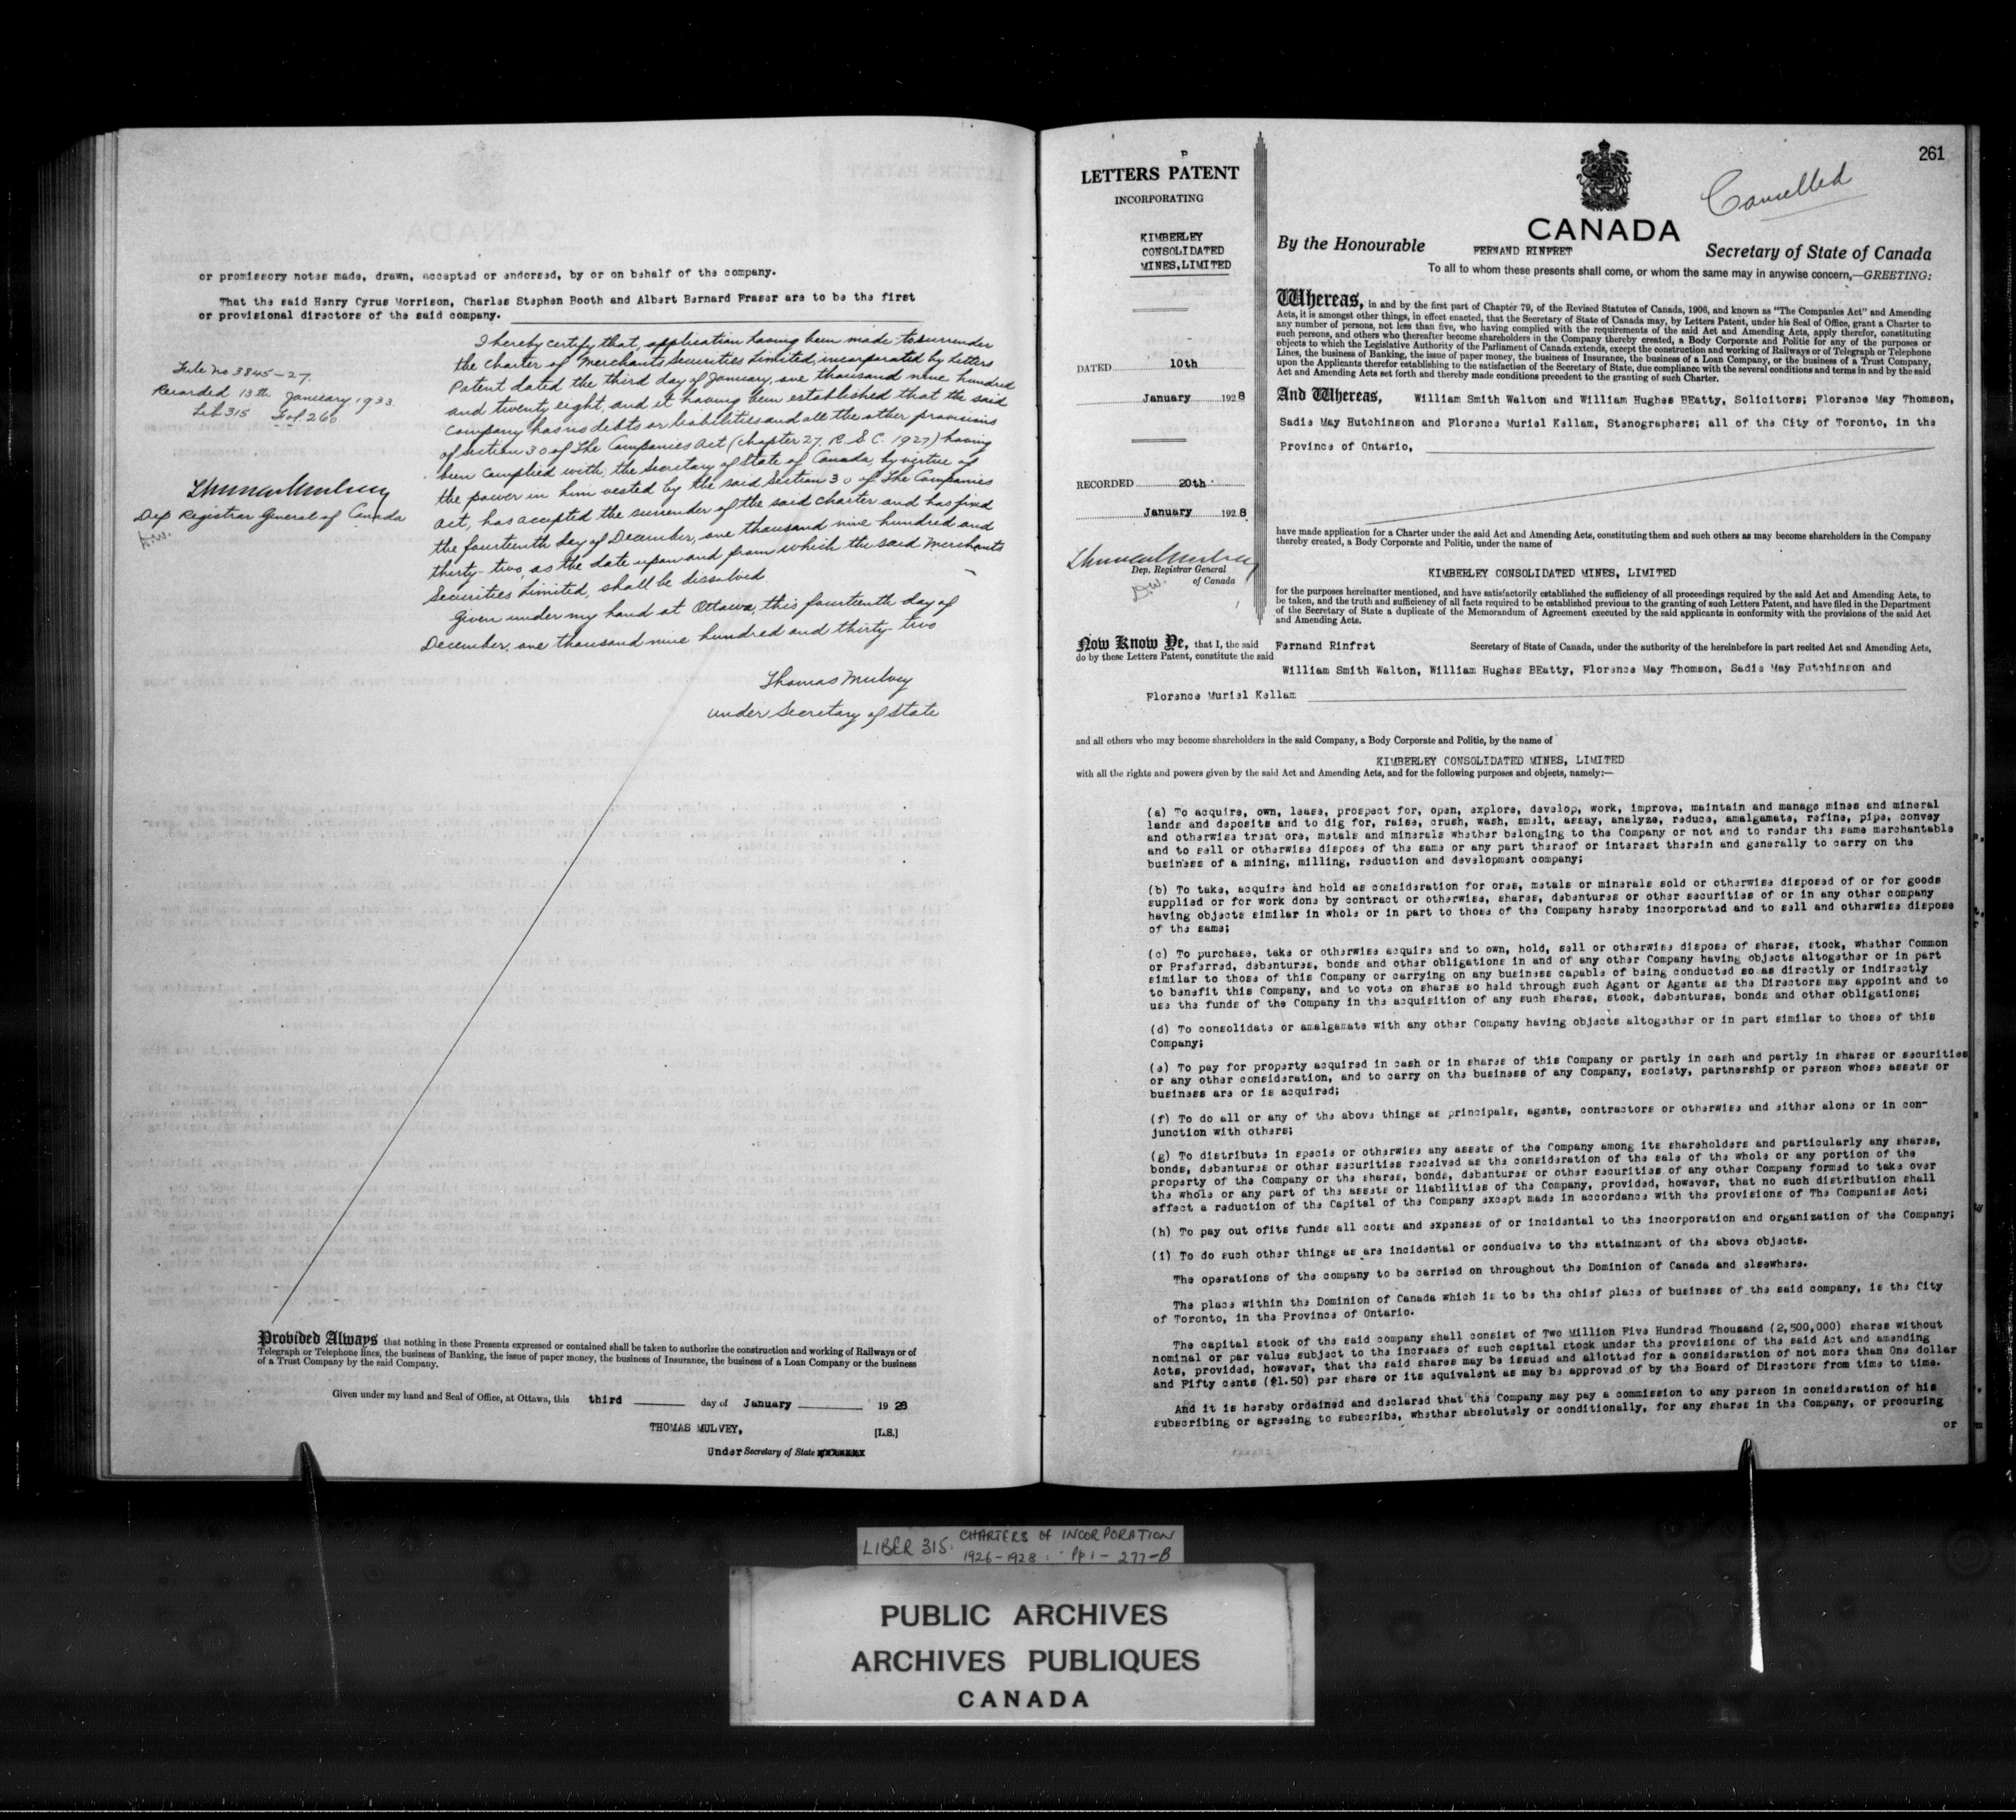 or promissory notes made, drawn, accepted or endorsed, by or on behalf of the company.
That the said Henry Cyrus Morrison, Charles Stephen Booth and Albert Bernard Fraser are to be the first
or provisional directors of the said company.
I hereby certify that, application having been made to surrender
the charter of Merchants Securities Limited, incorporated by Letters
Patent dated the third day of January, one thousand nine hundred
and twenty eight, and it having been established that the said
Company has no debts or liabilities and all the other provisions
of section 30 of The Companies Act (chapter 27. R.S.C. 1927) having
been complied with, the Secretary of State of Canada, by virtue of
the power in him vested by the said Section 30 of The Companies
Act, has accepted the surrender of the said charter and has fixed
the fourteenth day of December, one thousand nine hundred and
thirty-two, as the date upon and from which the said Merchants
Securities Limited, shall be dissolved.
Given under my hand at Ottawa, this fourteenth day of
December, one thousand nine hundred and thirty-two
Thomas Mulvey
Under Secretary of State
File No 3845-27.
Recorded 13th January 1933
Lib 315 Fol. 260
Thomas Mulvey
Dep Registrar General of Canada
Provided Always that nothing in these Presents expressed or contained shall be taken to authorize the construction and working of Railways or of
Telegraph or Telephone lines, the business of Banking, the issue of paper money, the business of Insurance, the business of a Loan Company or the business
of a Trust Company by the said Company.
Given under my hand and Seal of Office, at Ottawa, this third day of January 1928
THOMAS MULVEY, [L.S.]
Under Secretary of State
261
LETTERS PATENT
INCORPORATING
KIMBERLEY
CONSOLIDATED
MINES,LIMITED
DATED 10th
January 1928
RECORDED 20th
January 1928
Thomas Mulvey
Dep. Registrar General
of Canada
Cancelled
CANADA
By the Honourable FERNAND RINFRET Secretary of State of Canada
To all to whom these presents shall come, or whom the same may in anywise concern,—GREETING:
Whereas, in and by the first part of Chapter 79, of the Revised Statutes of Canada, 1906, and known as "The Companies Act" and Amending
Acts, it is amongst other things, in effect enacted, that the Secretary of State of Canada may, by Letters Patent, under his Seal of Office, grant a Charter to
any number of persons, not less than five, who having complied with the requirements of the said Act and Amending Acts, apply therefor, constituting
such persons, and others who thereafter become shareholders in the Company thereby created, a Body Corporate and Politic for any of the purposes or
objects to which the Legislative Authority of the Parliament of Canada extends, except the construction and working of Railways or of Telegraph or Telephone
Lines, the business of Banking, the issue of paper money, the business of Insurance, the business of a Loan Company, or the business of a Trust Company,
upon the Applicants therefor establishing to the satisfaction of the Secretary of State, due compliance with the several conditions and terms in and by the said
Act and Amending Acts set forth and thereby made conditions precedent to the granting of such Charter.
And Whereas, William Smith Walton and William Hughes BEatty, Solicitors; Florence May Thomson,
Sadie May Hutchinson and Florence Muriel Kellam, Stenographers; all of the City of Toronto, in the
Province of Ontario,
have made application for a Charter under the said Act and Amending Acts, constituting them and such others as may become shareholders in the Company
thereby created, a Body Corporate and Politic, under the name of
KIMBERLEY CONSOLIDATED MINES, LIMITED
for the purposes hereinafter mentioned, and have satisfactorily established the sufficiency of all proceedings required by the said Act and Amending Acts, to
be taken, and the truth and sufficiency of all facts required to be established previous to the granting of such Letters Patent, and have filed in the Department
of the Secretary of State a duplicate of the Memorandum of Agreement executed by the said applicants in conformity with the provisions of the said Act
and Amending Acts.
Now Know Ye, that I, the said Fernand Rinfret Secretary of State of Canada, under the authority of the hereinbefore in part recited Act and Amending Acts,
do by these Letters Patent, constitute the said
William Smith Walton, William Hughes BEatty, Florence May Thomson, Sadie May Hutchinson and
Florence Muriel Kellam
and all others who may become shareholders in the said Company, a Body Corporate and Politic, by the name of
KIMBERLEY CONSOLIDATED MINES, LIMITED
with all the rights and powers given by the said Act and Amending Acts, and for the following purposes and objects, namely:—
(a) To acquire, own, lease, prospect for, open, explore, develop, work, improve, maintain and manage mines and mineral
lands and deposits and to dig for, raise, crush, wash, smelt, assay, analyze, reduce, amalgamate, refine, pipe, convey
and otherwise treat ore, metals and minerals whether belonging to the Company or not and to render the same merchantable
and to sell or otherwise dispose of the same or any part thereof or interest therein and generally to carry on the
business of a mining, milling, reduction and development company;
(b) To take, acquire and hold as consideration for ores, metals or minerals sold or otherwise disposed of or for goods
supplied or for work done by contract or otherwise, shares, debentures or other securities of or in any other company
having objects similar in whole or in part to those of the Company hereby incorporated and to sell and otherwise dispose
of the same;
(c) To purchase, take or otherwise acquire and to own, hold, sell or otherwise dispose of shares, stock, whether Common
or Preferred, debentures, bonds and other obligations in and of any other Company having objects altogether or in part
similar to those of this Company or carrying on any business capable of being conducted so as directly or indirectly
to benefit this Company, and to vote on shares so held through such Agent or Agents as the Directors may appoint and to
use the funds of the Company in the acquisition of any such shares, stock, debentures, bonds and other obligations;
(d) To consolidate or amalgamate with any other Company having objects altogether or in part similar to those of this
Company;
(e) To pay for property acquired in cash or in shares of this Company or partly in cash and partly in shares or securities
or any other consideration, and to carry on the business of any Company, society, partnership or person whose assets or
business are or is acquired;
(f) To do all or any of the above things as principals, agents, contractors or otherwise and either alone or in con-
junction with others;
(g) To distribute in specie or otherwise any assets of the Company among its shareholders and particularly any shares,
bonds, debentures or other securities received as the consideration of the sale of the whole or any portion of the
property of the Company or the shares, bonds, debentures or other securities of any other Company formed to take over
the whole or any part of the assets or liabilities of the Company, provided, however, that no such distribution shall
effect a reduction of the Capital of the Company except made in accordance with the provisions of The Companies Act;
(h) To pay out ofits funds all costs and expenses of or incidental to the incorporation and organization of the Company;
(i) To do such other things as are incidental or conducive to the attainment of the above objects.
The operations of the company to be carried on throughout the Dominion of Canada and elsewhere.
The place within the Dominion of Canada which is to be the chief place of business of the said company, is the City
of Toronto, in the Province of Ontario.
The capital stock of the said company shall consist of Two Million Five Hundred Thousand (2,500,000) shares without
nominal or par value subject to the increase of such capital stock under the provisions of the said Act and amending
Acts, provided, however, that the said shares may be issued and allotted for a consideration of not more than One dollar
and Fifty cents ($1.50) per share or its equivalent as may be approved of by the Board of Directors from time to time.
And it is hereby ordained and declared that the Company may pay a commission to any person in consideration of his
subscribing or agreeing to subscribe, whether absolutely or conditionally, for any shares in the Company, or procuring
or
LIBER 315: CHARTERS OF INCORPORATION
1926-1928: Pp 1- 277-B
PUBLIC ARCHIVES
ARCHIVES PUBLIQUES
CANADA